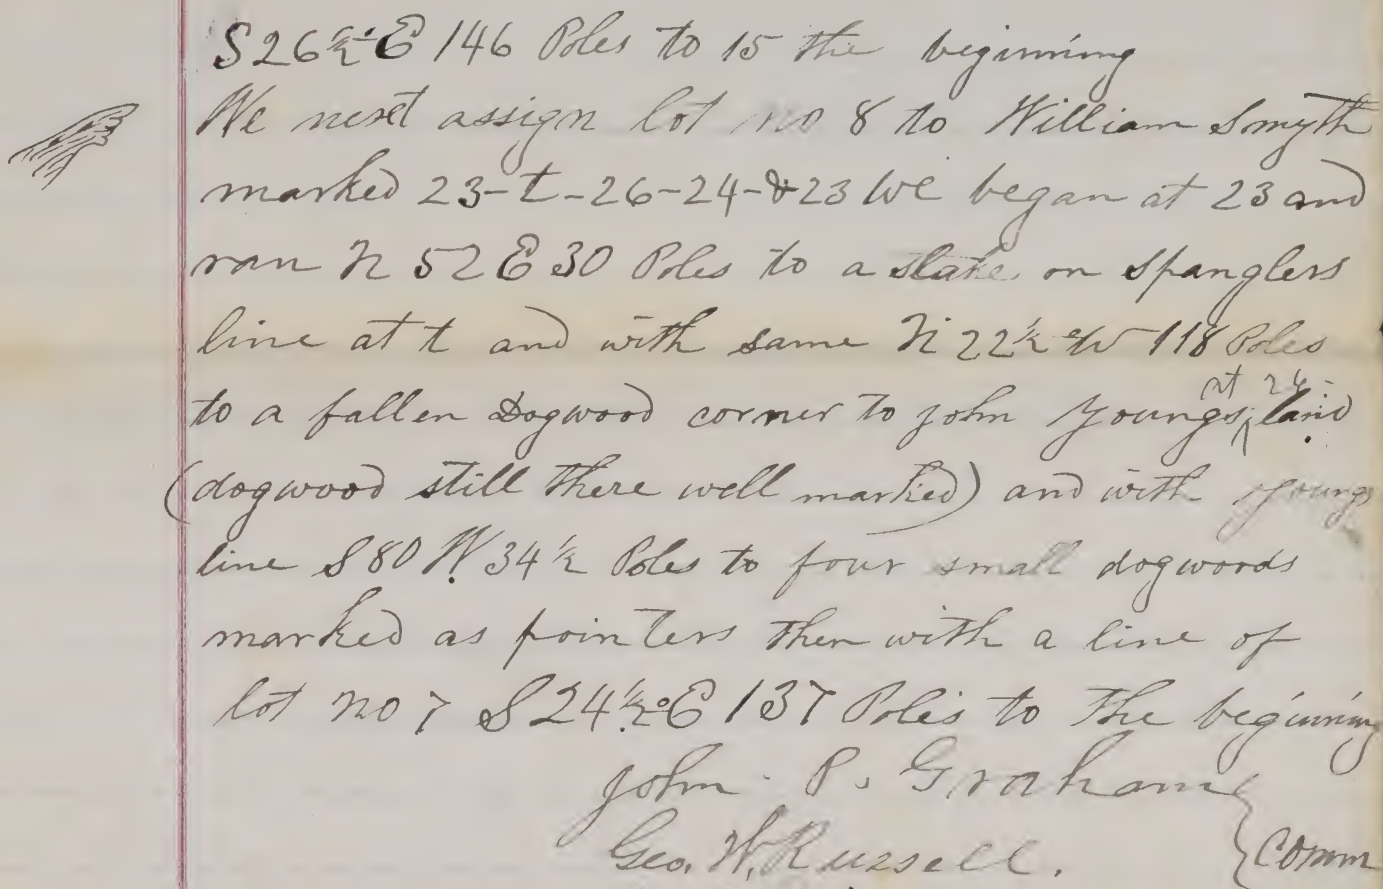 S 26½° E 146 Poles to 15 the beginning
We next assign lot no 8 to William Smyth
marked 23-t-26-24-&23 We began at 23 and
ran N 52 E 30 Poles to a stake on Spanglers
line at t and with same N 22½° W 118 Poles
to a fallen Dogwood corner to john Youngs at 26 land
(dogwood still there well marked) and with youngs
line S 80 W. 34½ Poles to four small dogwoods
marked as pointers then with a line of
lot no 7 S 24½° E 137 Poles to the beginning
john P. Graham
Geo. W. Russell. } Comm